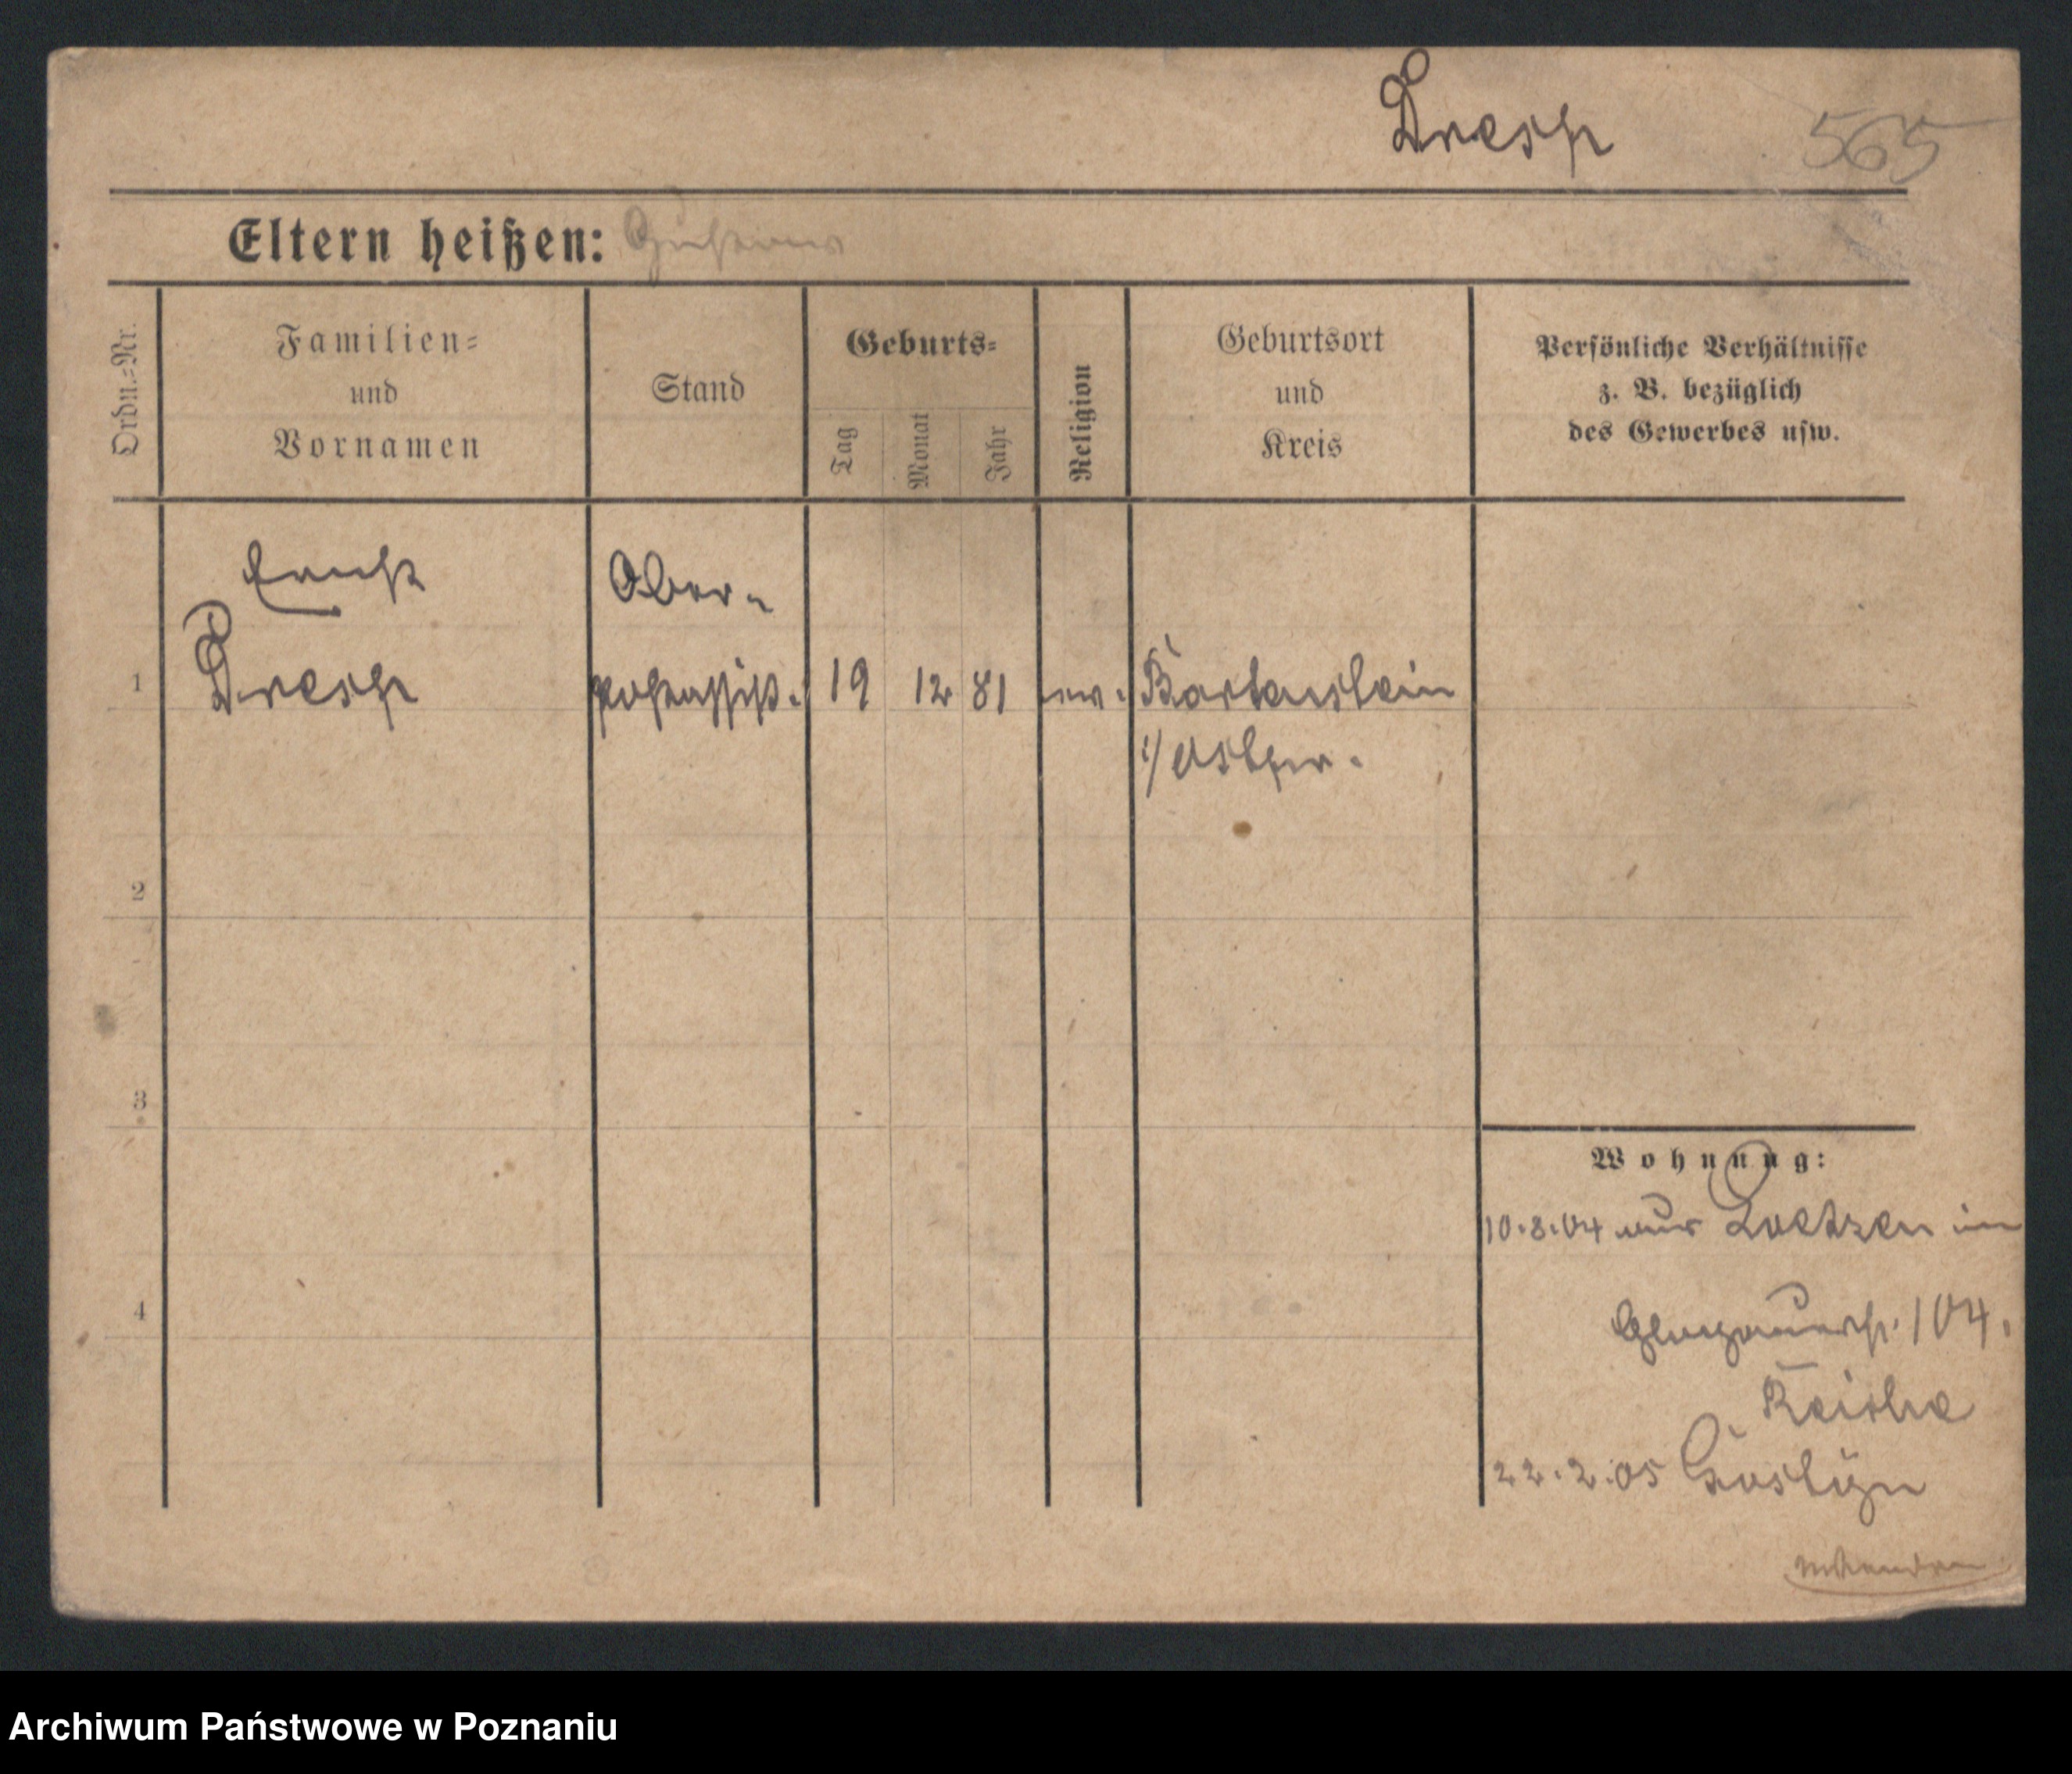 Dresp
565
Eltern heißen: Gustav
Ordn.=Nr.
Familien=
und
Vornamen
Stand
Geburts=
Tag
Monat
Jahr
Religion
Geburtsort
und
Kreis
Persönliche Verhältnisse
z. B. bezüglich
des Gewerbes usw.
Ernst
Ober-
1 Dresp postassist. 19 12 81 ev. Bartenstein
i/Ostpr.
2
3
4
Wohnung:
10.8.04 aus Loetzen in
Glogauerstr. 104.
22.2.05 Gostyn
Archiwum Państwowe w Poznaniu